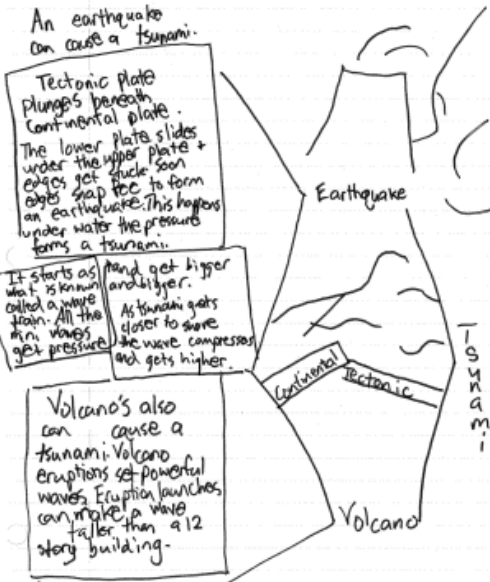 An earthquake
can cause a tsunami.
Tectonic plate
plunges beneath
continental plate.
The lower plate slides
under the upper plate +
edges get stuck soon
edges snap free to form
an earthquake. This happens
under water the pressure
forms a tsunami.
It starts as
what is known
called a wave
train. All the
mini waves
get pressure
and get bigger
and bigger.
As tsunami gets
closer to shore
the wave compresses
and gets higher.
Volcano's also
can cause a
tsunami. Volcano
eruptions set powerful
waves. Eruption launches
can make a wave
taller than a 12
story building.
Earthquake
Continental
Tectonic
Tsunami
Volcano